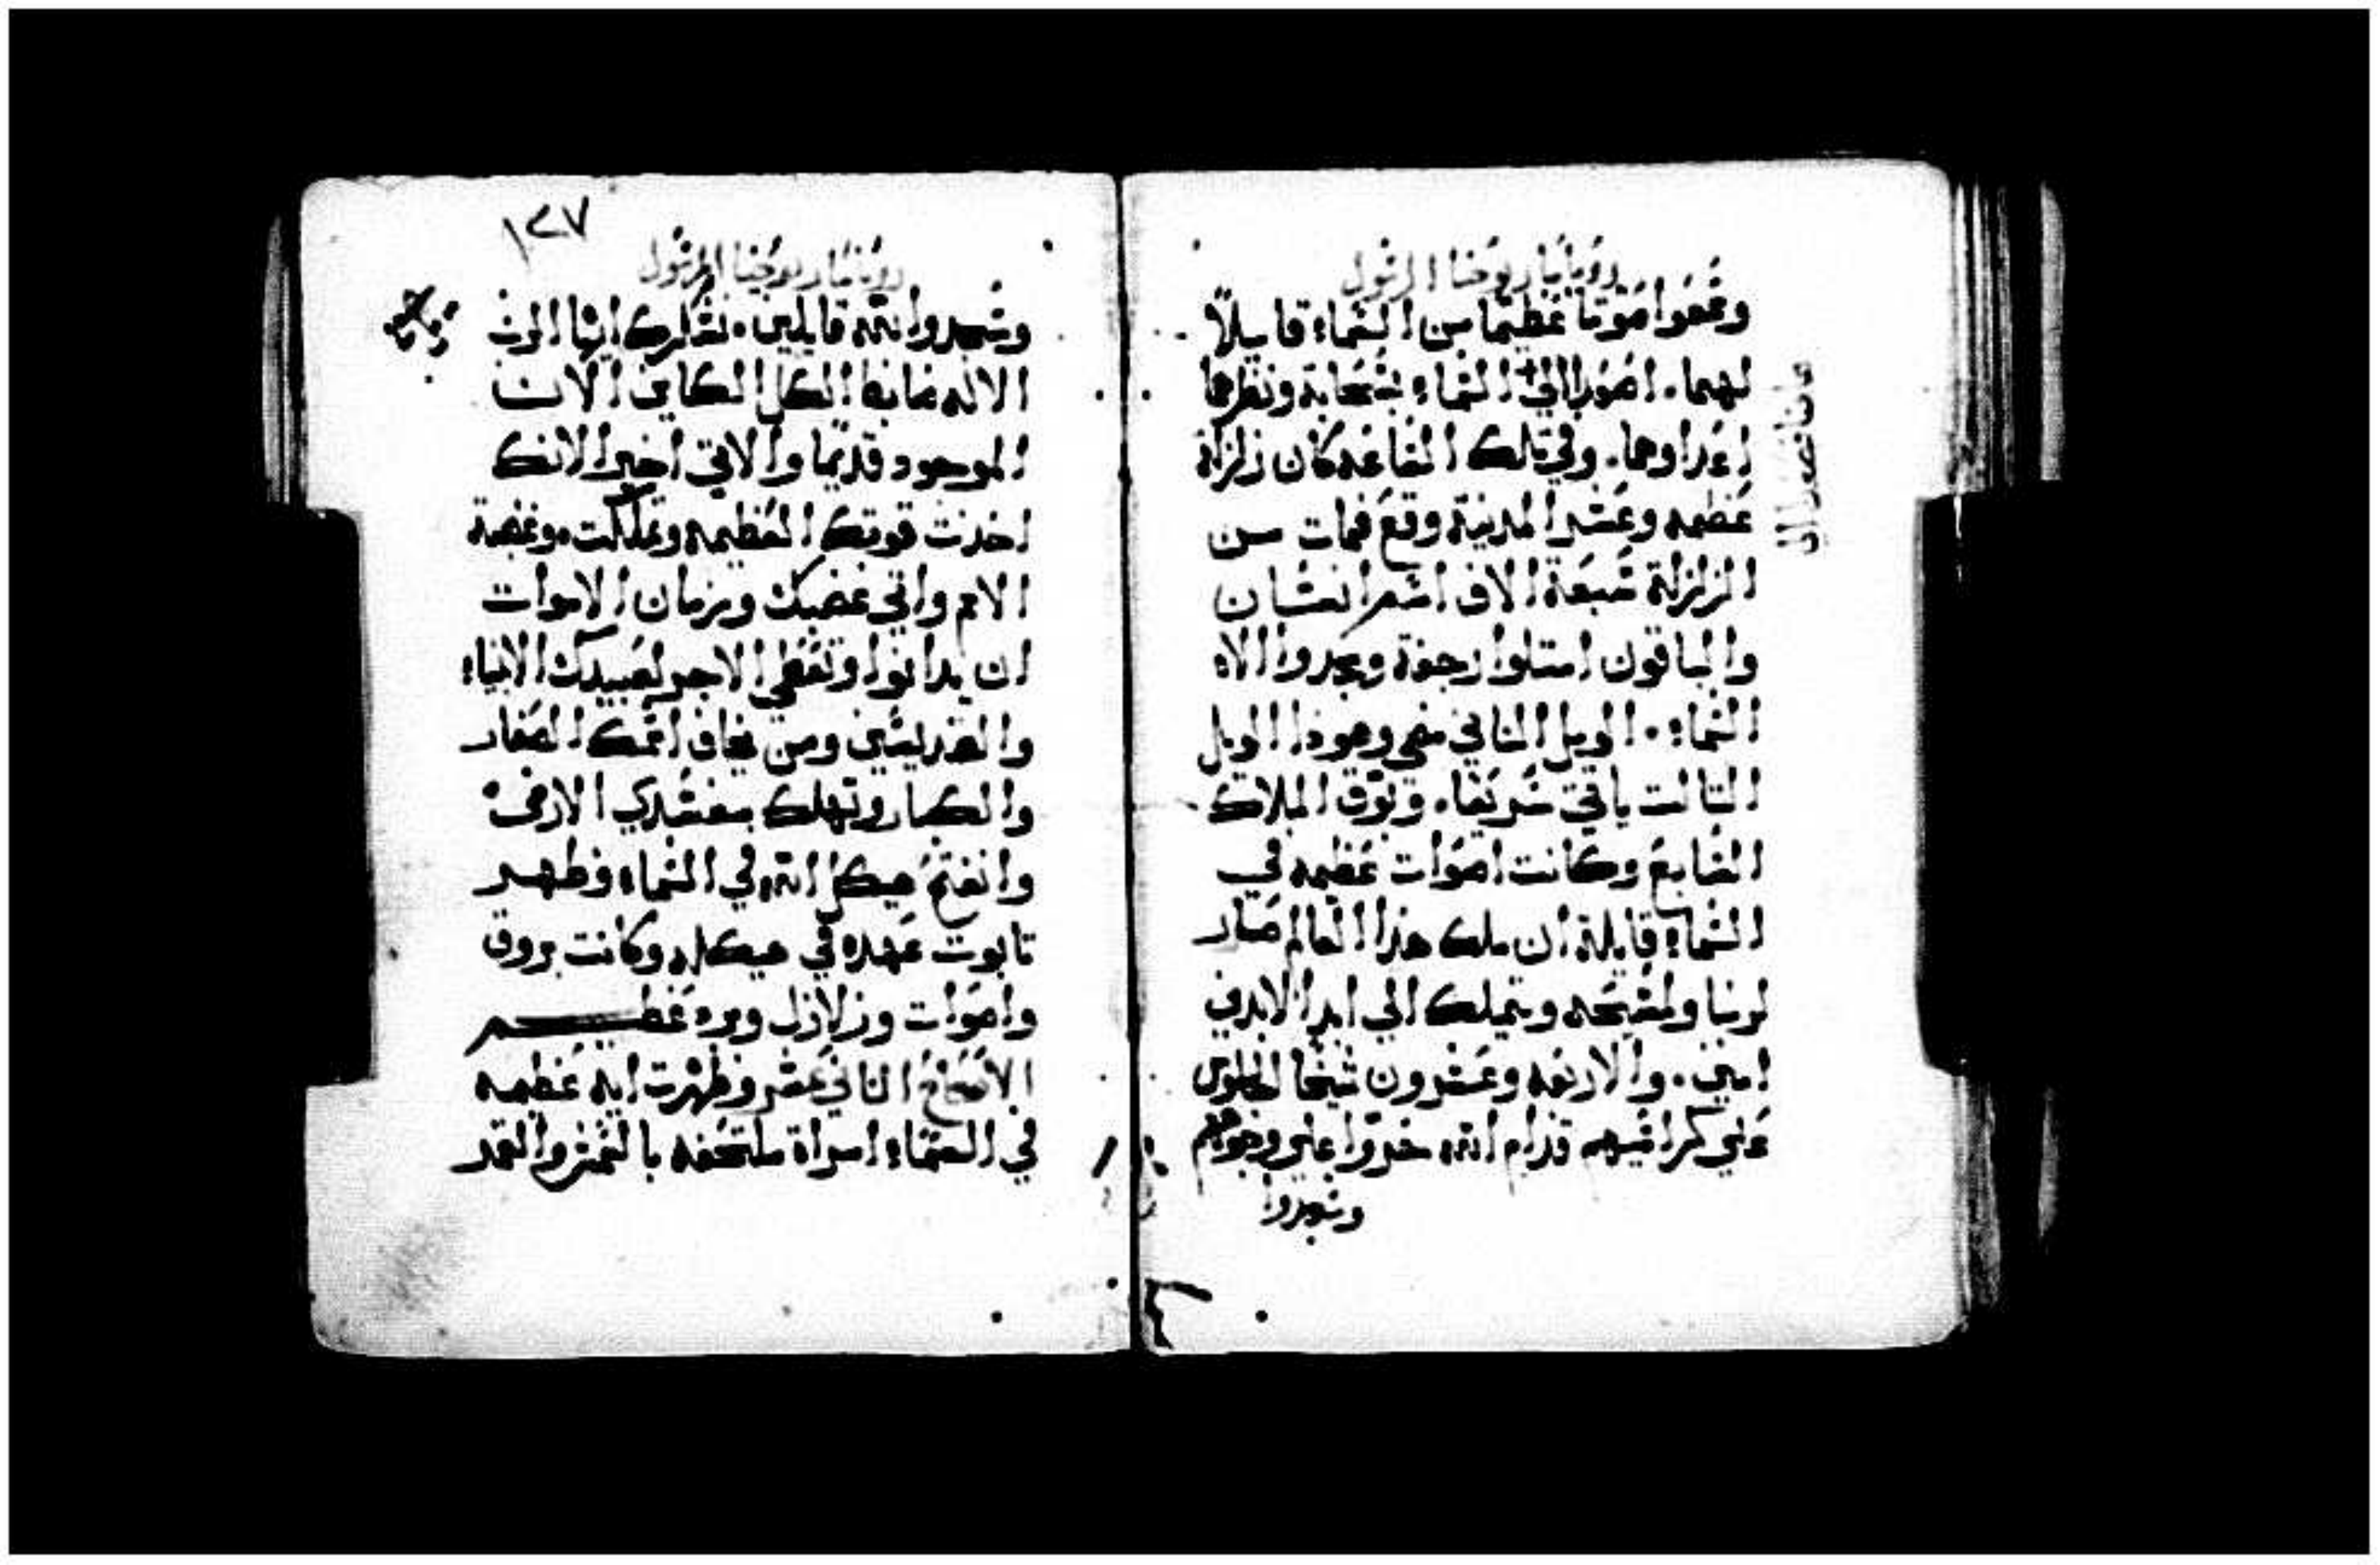 رويا ماريوحنا الرسول
وسمعوا صوتا عظيما من السماء قايلاً
لهما. اصعدا الي السماء بسحابة ونظرهما
اعداوهما. وفي تلك الساعه كان زلزلة
عظيمه وعشر المدينة وقع فمات من
الزلزلة سبعة الاف اسم انسان
والباقون امتلوا رجفة ومجدوا الاه
السماء. الويل الثاني مضي وهوذا الويل
الثالث ياتي سريعا. وبوق الملاك
السابع وكانت اصوات عظيمه في
السماء قايلة ان ملك هذا العالم صار
لربنا ولمسيحه ويتملك الي ابد الابدين
امين. والاربعه وعشرون شيخا الجلوس
علي كراسيهم قدام الله خروا علي وجوههم
وسجدوا
١٤٧
رويا ماريوحنا الرسول
وسجدوا لله قايلين. نشكرك ايها الرب
الاله ضابط الكل الكاين الان
الموجود قديما والاتي اخيرا لانك
اخذت قوتك العظيمه وتملكت. وغضبة
الامم واتي غضبك وزمان الاموات
ان يدانوا وتعطي الاجر لعبيدك الانبياء
والقديسين ومن يخاف اسمك الصغار
والكبار وتهلك مفسدي الارض
وانفتح هيكل الله في السماء وظهر
تابوت عهده في هيكله وكانت بروق
واصوات وزلازل وبرد عظيم
الاصحاح الثاني عشر وظهرت ايه عظيمه
في السماء امراة ملتحفه بالشمس والقمر